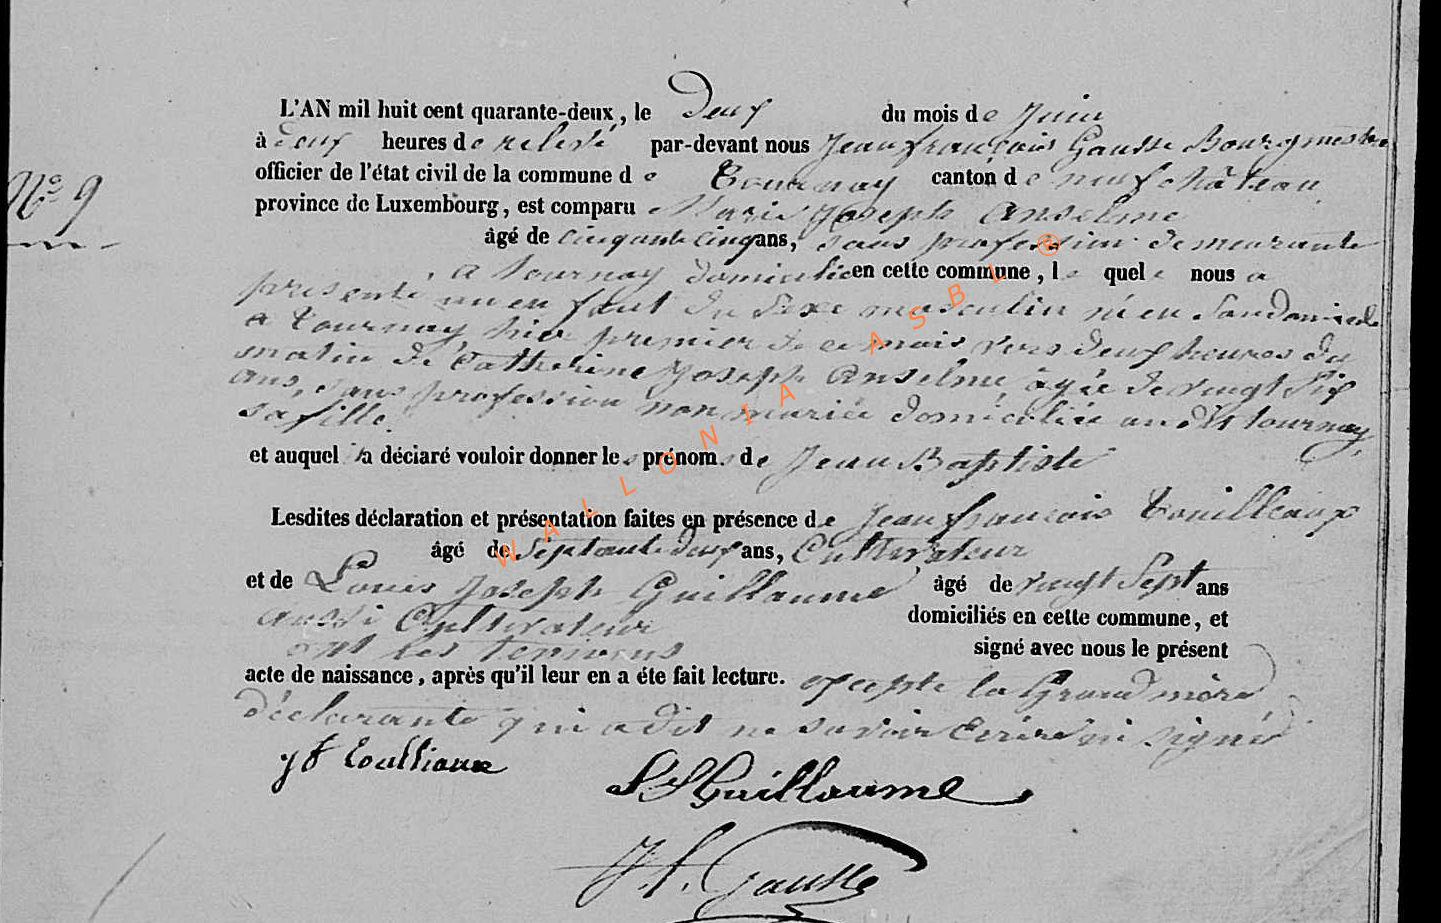 L'AN mil huit cent quarante-deux, le Deux du mois de Juin
à deux heures de relevé par-devant nous Jean françois Gausse Bourgmestre
N° 9
officier de l'état civil de la commune de Tournay canton de neufchâteau
province de Luxembourg, est comparu Marie Joseph Anselme
âgé de cinquante cinq ans, sans profession demeurante
a tournay domiciliée en cette commune, le quel e nous a
presenté un enfant du sexe masculin né en
a tournay hier premier de ce mois vers deux heures du
matin de Catherine Joseph Anselme âgée de vingt six
ans, sans profession non mariée domiciliée au dit tournay,
sa fille.
et auquel a déclaré vouloir donner les prénoms de Jean Baptiste
Lesdites déclaration et présentation faites en présence de Jean françois Touilleaux
âgé de septante deux ans, Cultivateur
et de Louis Joseph Guillaume âgé de vingt sept ans
aussi Cultivateur domiciliés en cette commune, et
ont les temoins signé avec nous le présent
acte de naissance, après qu'il leur en a éte fait lecture. excepté la Grand mère
déclarante qui a dit ne savoir Ecrire ni signé
JF Toulliaux
L J Guillaume
J f. Gausse
WALLONIA ASBL ®